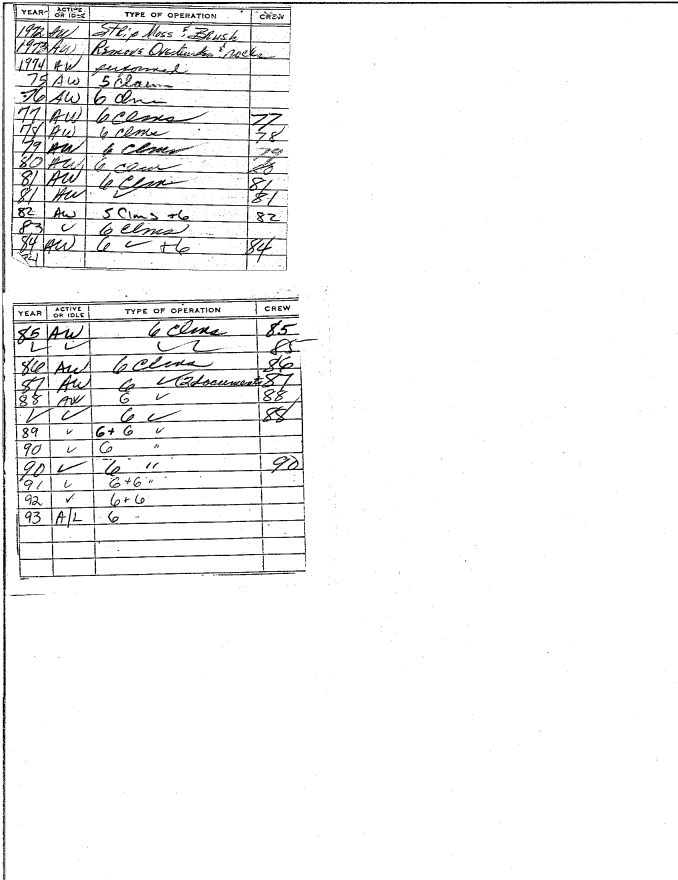 YEAR ACTIVE OR IDLE TYPE OF OPERATION CREW
1972 AW Strip Moss & Brush
1973 AW Remove Overburden & rocks
1974 AW performed
75 AW 5 Claim
76 AW 6
77 AW 6 Clms 77
78 AW 6 Clms 78
79 AW 6 Clms 79
80 AW 6 80
81 AW 6 Clms 81
81 AW ✓ 81
82 AW 5 Clms +6 82
83 ✓ 6 Clms
84 AW 6 ✓ +6 84
YEAR ACTIVE OR IDLE TYPE OF OPERATION CREW
85 AW 6 Clms 85
✓ ✓ ✓ ✓ 85
86 AW 6 Clms 86
87 AW 6 ✓ (2 documents 87
88 AW 6 ✓ 88
✓ ✓ 6 ✓ 88
89 ✓ 6+6 ✓
90 ✓ 6 "
90 ✓ 6 " 90
91 ✓ 6+6 "
92 ✓ 6+6
93 A/L 6